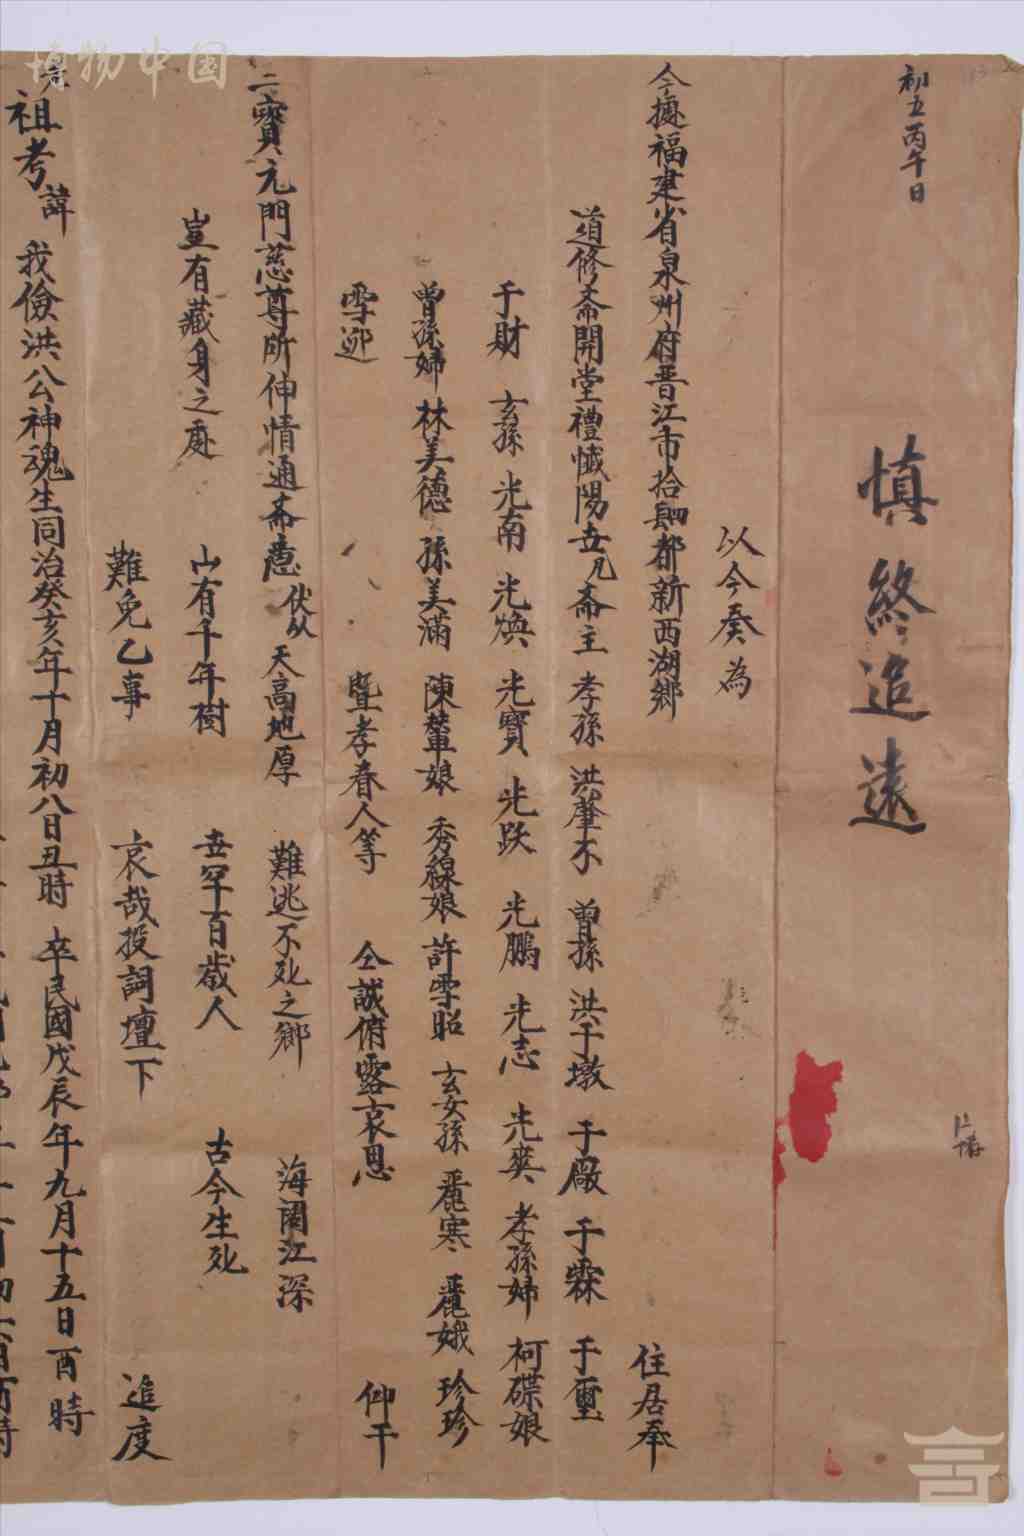 初五丙午日
慎終追遠
以今癸為
今據福建省泉州府晋江市拾肆都新西湖鄉 住居奉
道修斋開堂禮懺陽世凡斋主 孝孫 洪肇不 曾孫 洪于墩 于廠 于霖 于璽
于財 玄孫 光南 光煥 光寶 光跃 光鵬 光志 光爽 孝孫婦 柯碟娘
曾孫婦 林美德 孫美滿 陳輦娘 秀線娘 許雪昭 玄女孫 麗寒 麗娥 珍珍
雪迎 暨孝眷人等 仝誠俯露哀思 仰干
二寶元門慈尊所伸情通斋意 伏以 天高地厚 難逃不死之鄉 海闊江深
豈有藏身之處 山有千年樹 世罕百歲人 古今生死
難免乙事 哀哉投詞壇下 追度
祖考 諱 我儉洪公神魂生同治癸亥年十月初八日丑時 卒民國戊辰年九月十五日酉時
博物中国